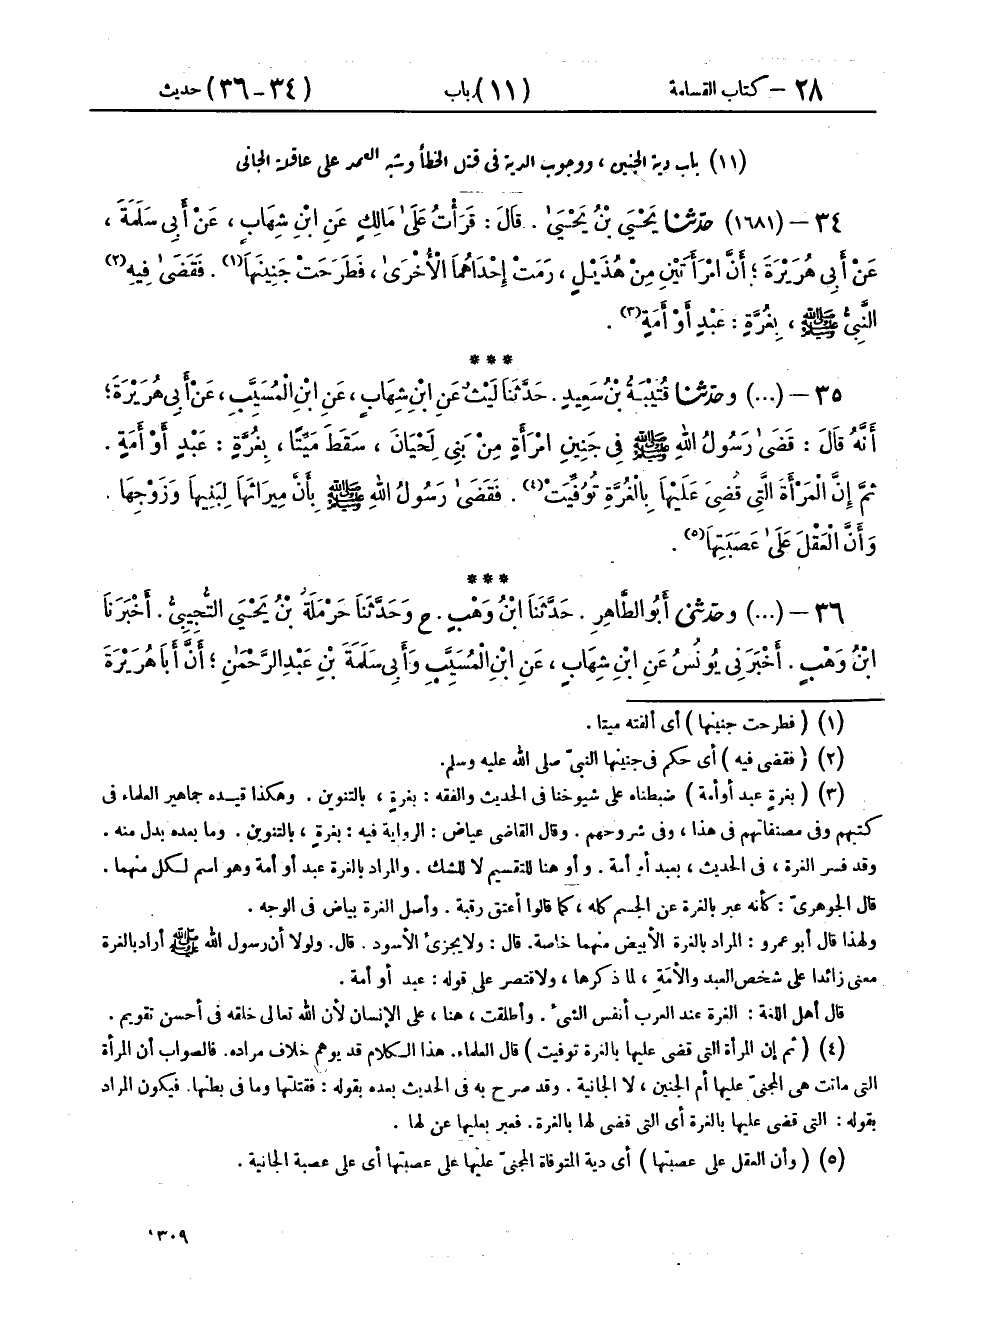 ٢٨ – كتاب القسامة (١١) باب (٣٤ – ٣٦) حديث
(١١) باب دية الجنين ، ووجوب الدية فى قتل الخطأ وشبه العمد على عاقلة الجانى
٣٤ – (١٦٨١) حَدَّثَنَا يَحْيَىٰ بْنُ يَحْيَىٰ . قَالَ : قَرَأْتُ عَلَىٰ مَالِكٍ عَنِ ابْنِ شِهَابٍ ، عَنْ أَبِي سَلَمَةَ ،
عَنْ أَبِي هُرَيْرَةَ ؛ أَنَّ امْرَأَتَيْنِ مِنْ هُذَيْلٍ ، رَمَتْ إِحْدَاهُمَا الْأُخْرَىٰ ، فَطَرَحَتْ جَنِينَهَا(١) . فَقَضَىٰ فِيهِ(٢)
النَّبِيُّ ﷺ ، بِغُرَّةٍ : عَبْدٍ أَوْ أَمَةٍ(٣) .
***
٣٥ – (...) وحَدَّثَنَا قُتَيْبَةُ بْنُ سَعِيدٍ . حَدَّثَنَا لَيْثٌ عَنِ ابْنِ شِهَابٍ ، عَنِ ابْنِ الْمُسَيَّبِ ، عَنْ أَبِي هُرَيْرَةَ ؛
أَنَّهُ قَالَ : قَضَىٰ رَسُولُ اللهِ ﷺ فِي جَنِينِ امْرَأَةٍ مِنْ بَنِي لِحْيَانَ ، سَقَطَ مَيِّتًا ، بِغُرَّةٍ : عَبْدٍ أَوْ أَمَةٍ .
ثُمَّ إِنَّ الْمَرْأَةَ الَّتِي قُضِيَ عَلَيْهَا بِالْغُرَّةِ تُوُفِّيَتْ(٤) . فَقَضَىٰ رَسُولُ اللهِ ﷺ بِأَنَّ مِيرَاثَهَا لِبَنِيهَا وَزَوْجِهَا .
وَأَنَّ الْعَقْلَ عَلَىٰ عَصَبَتِهَا(٥) .
***
٣٦ – (...) وحَدَّثَنِي أَبُو الطَّاهِرِ . حَدَّثَنَا ابْنُ وَهْبٍ . ح وَحَدَّثَنَا حَرْمَلَةُ بْنُ يَحْيَى التُّجِيبِيُّ . أَخْبَرَنَا
ابْنُ وَهْبٍ . أَخْبَرَنِي يُونُسُ عَنِ ابْنِ شِهَابٍ ، عَنِ ابْنِ الْمُسَيَّبِ وَأَبِي سَلَمَةَ بْنِ عَبْدِ الرَّحْمَٰنِ ؛ أَنَّ أَبَا هُرَيْرَةَ
(١) ( فطرحت جنينها ) أى ألقته ميتا .
(٢) ( فقضى فيه ) أى حكم فى جنينها النبىّ صلى الله عليه وسلم.
(٣) ( بغرةٍ عبد أو أمة ) ضبطناه على شيوخنا فى الحديث والفقه : بغرةٍ ، بالتنوين . وهكذا قيده جماهير العلماء فى
كتبهم وفى مصنفاتهم فى هذا ، وفى شروحهم . وقال القاضى عياض : الرواية فيه : بغرةٍ ، بالتنوين . وما بعده بدل منه .
وقد فسر الغرة ، فى الحديث ، بعبد أو أمة . وأو هنا للتقسيم لا للشك . والمراد بالغرة عبد أو أمة وهو اسم لكل منهما .
قال الجوهرىّ : كأنه عبر بالغرة عن الجسم كله ، كما قالوا أعتق رقبة . وأصل الغرة بياض فى الوجه .
ولهذا قال أبو عمرو : المراد بالغرة الأبيض منهما خاصة. قال : ولا يجزئ الأسود . قال. ولولا أن رسول الله ﷺ أراد بالغرة
معنى زائدا على شخص العبد والأمَةِ ، لما ذكرها ، ولاقتصر على قوله : عبد أو أمة .
قال أهل اللغة : الغرة عند العرب أنفس الشىء . وأطلقت ، هنا ، على الإنسان لأن الله تعالى خلقه فى أحسن تقويم .
(٤) ( ثم إن المرأة التى قضى عليها بالغرة توفيت ) قال العلماء. هذا الكلام قد يوهم خلاف مراده. فالصواب أن المرأة
التى ماتت هى المجنىّ عليها أم الجنين ، لا الجانية . وقد صرح به فى الحديث بعده بقوله : فقتلتها وما فى بطنها. فيكون المراد
بقوله : التى قضى عليها بالغرة أى التى قضى لها بالغرة. فعبر بعليها عن لها .
(٥) ( وأن العقل على عصبتها ) أى دية المتوفاة المجنىّ عليها على عصبتها أى على عصبة الجانية .
١٣٠٩